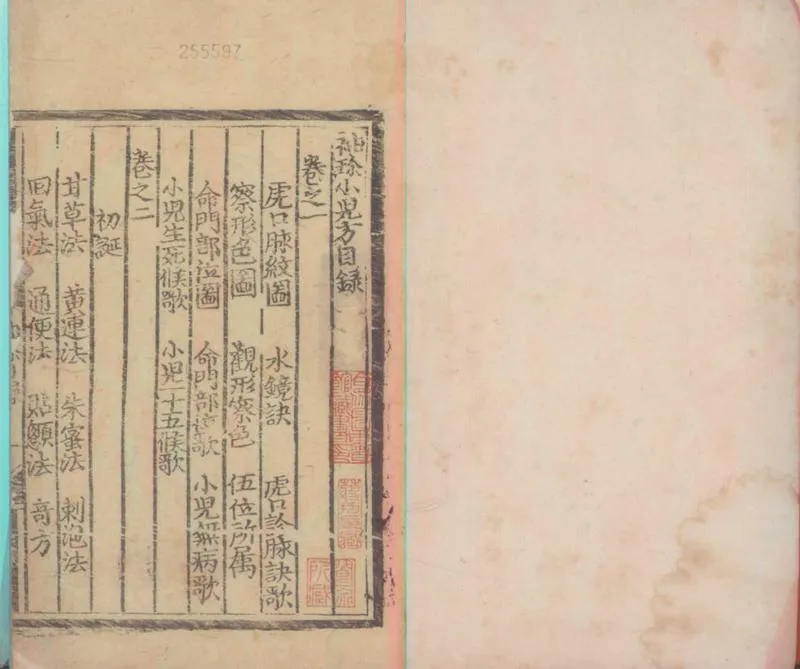 255597
袖珍小児方目録
卷之一
虎口脉紋圖 水鏡訣 虎口診脉訣歌
察形色圖 觀形察色 伍位所属
命門部位圖 命門部位歌 小児無病歌
小児生死候歌 小児一十五候歌
卷之二
初誕
甘草法 黄連法 朱蜜法 刺泡法
回氣法 通便法 貼顖法 奇方